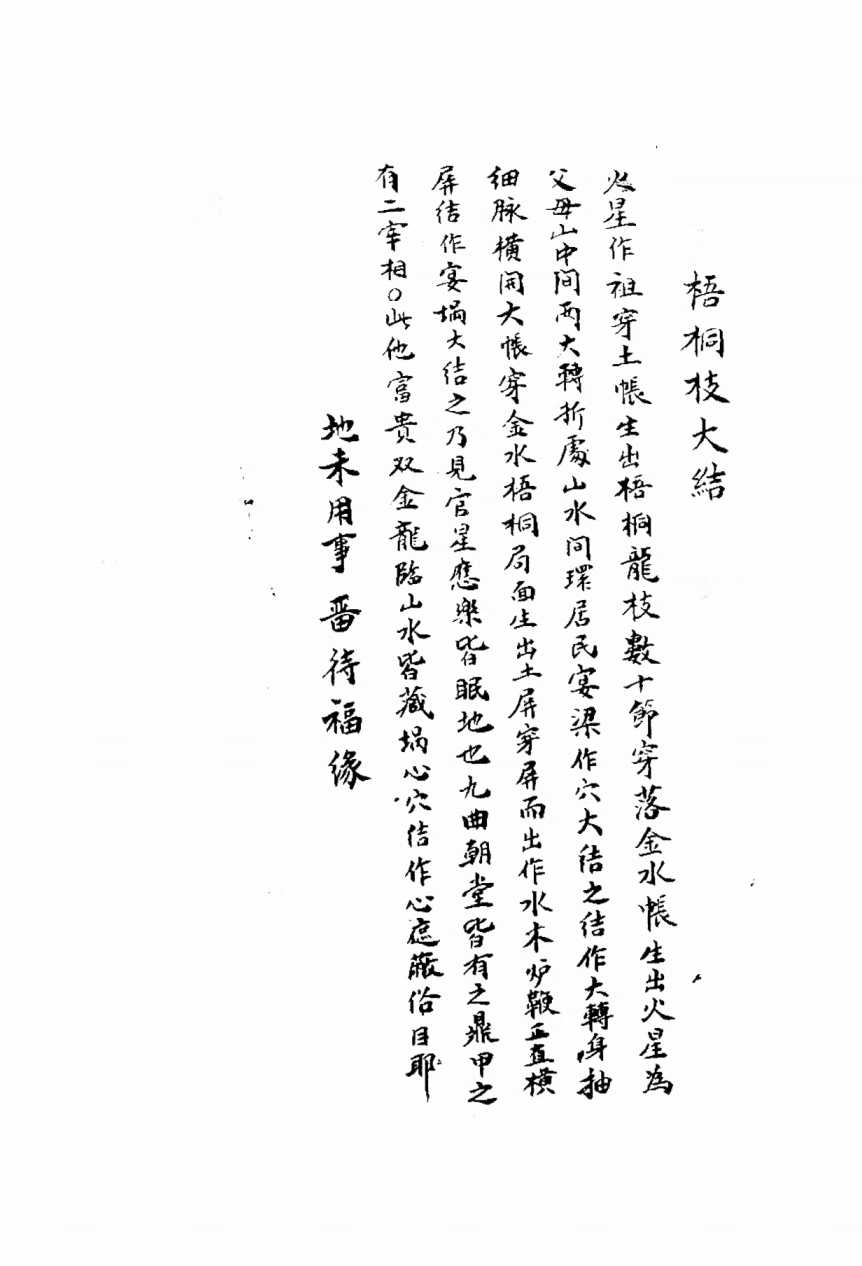 梧桐枝大結
火星作祖穿土帳生出梧桐龍枝數十節穿落金水帳生出火星為
父母山中間两大轉折處山水间環居民宴梁作穴大结之结作大轉身抽
细脉横開大帳穿金水梧桐局面生出土屏穿屏而出作水木炉鞭正直横
屏结作宴堝大结之乃見官星應樂皆眠地也九曲朝堂皆有之鼎甲之
有二宰相○此他富贵双金龍臨山水皆藏堝心穴结作心遮蔽俗目耶
地未用事 畱待福缘